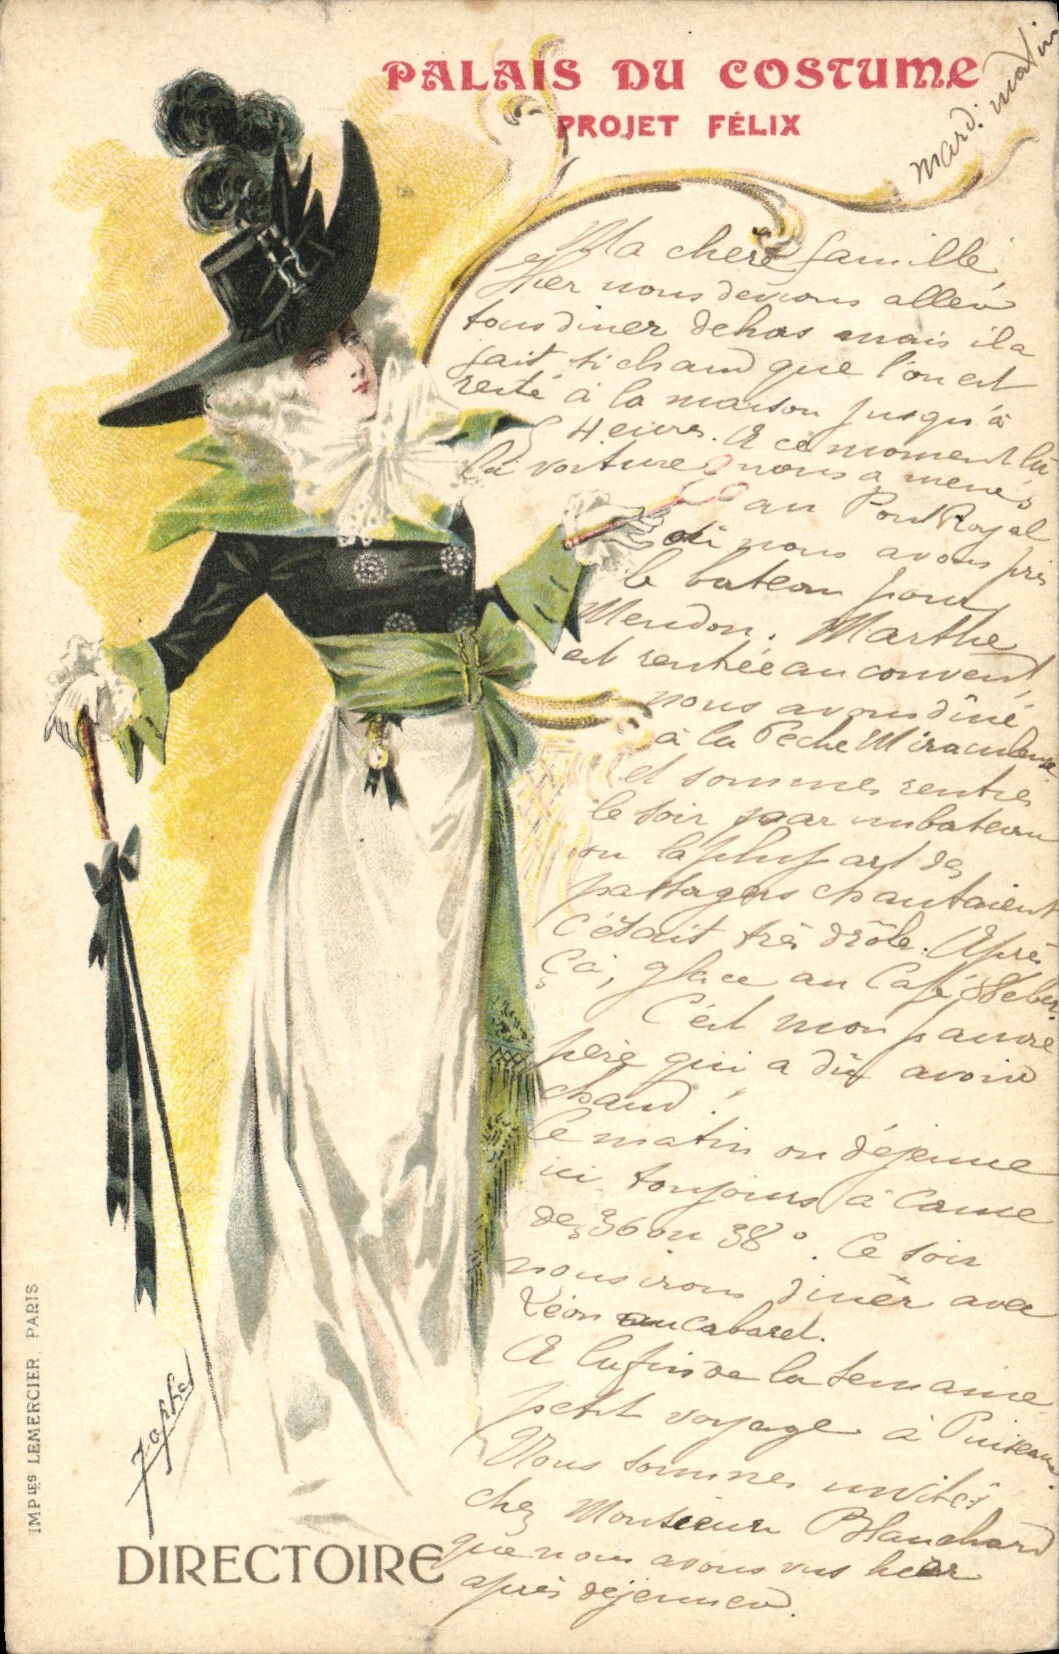 PALAIS DU COSTUME
PROJET FÉLIX
mardi matin
Ma chère famille
Hier nous devions aller
tous diner dehos mais il a
fait si chaud que l'on est
resté à la maison jusqu'à
4 eures. A ce moment là
la voiture nous a menés
au Pont Royal
où nous avons pris
le bateau pour
Meudon. Marthe
est rentrée au couvent
nous avons dîné
à la Pêche Miraculeuse
et sommes rentrés
le soir par un bateau
ou la plupart des
passagers chantaient
C'était très drôle. Après
Ça, glace au Café Weber.
C'est mon pauvre
père qui a dû avoir
chaud!
Ce matin on déjeune
ici toujours à
de 36 ou 38°. Ce soir
nous irons diner avec
Léon au Cabaret.
A la fin de la semaine
petit voyage à Puiseaux.
Nous sommes invités
chez Monsieur Blanchard
que nous avons vus hier
après déjeuner.
Japhet
DIRECTOIRE
IMPIES LEMERCIER, PARIS